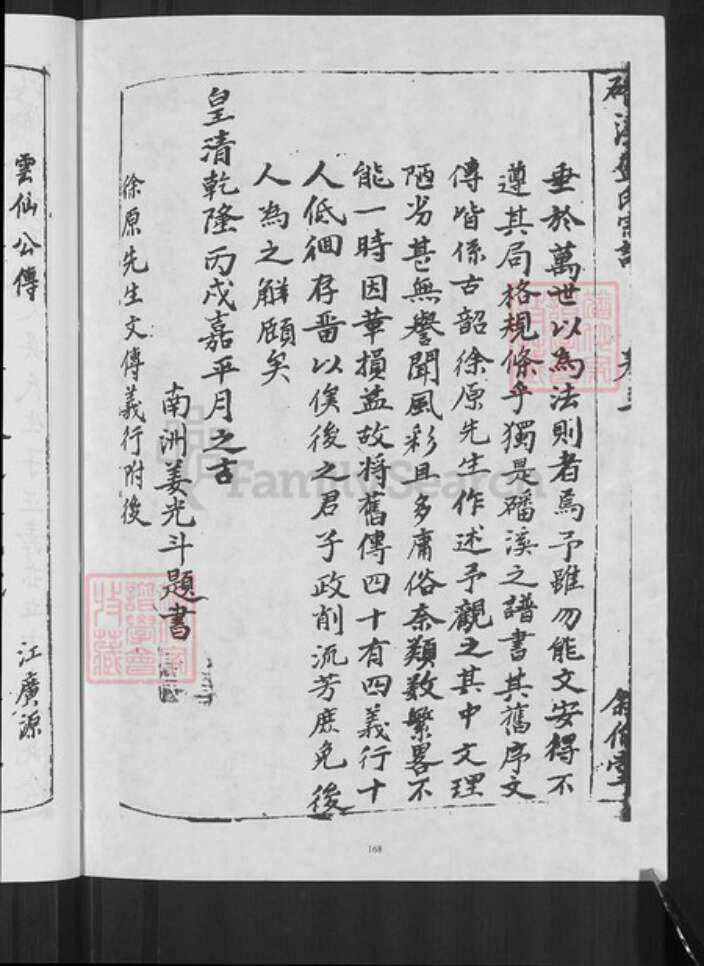 垂於萬世以為法則者焉予雖勿能文安得不
遵其局格規條乎獨是磻溪之譜書其舊序文
傳皆係古韶徐原先生作述予觀之其中文理
陋劣甚無譽聞風彩且多庸俗奈類敘繁畧不
能一時因革損益故將舊傳四十有四義行十
人低徊存畱以俟後之君子政削流芳庶免後
人為之解頤矣
皇清乾隆丙戌嘉平月之吉
南洲姜光斗題書
徐原先生文傳義行附後
雲仙公傳
江廣源
168
FamilySearch